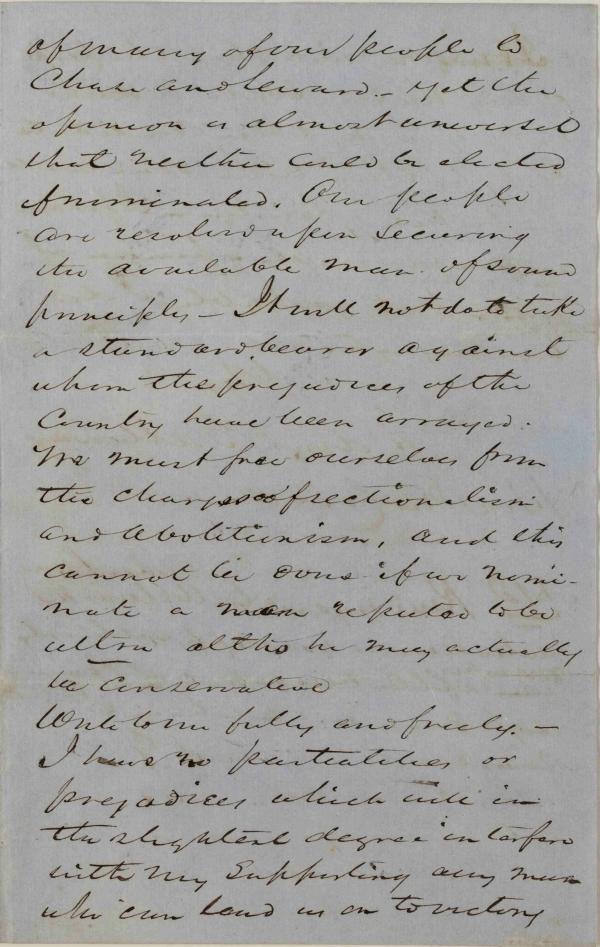 of many of our people to
Chase and Seward. – yet the
opinion is almost universal
that neither could be elected
if nominated. Our people
are resolved upon securing
the available man of sound
principles – It will not do to take
a standard bearer against
whom the prejudices of the
Country have been arrayed.
We must free ourselves from
the charges of sectionalism
and Abolitionism, and this
cannot be done if we nomi-
nate a man reputed to be
ultra altho he may actually
be Conservative
Write to me fully and freely. –
I have no partialities or
prejudices which will in
the slightest degree interfere
with my Supporting any man
who can lead us on to victory